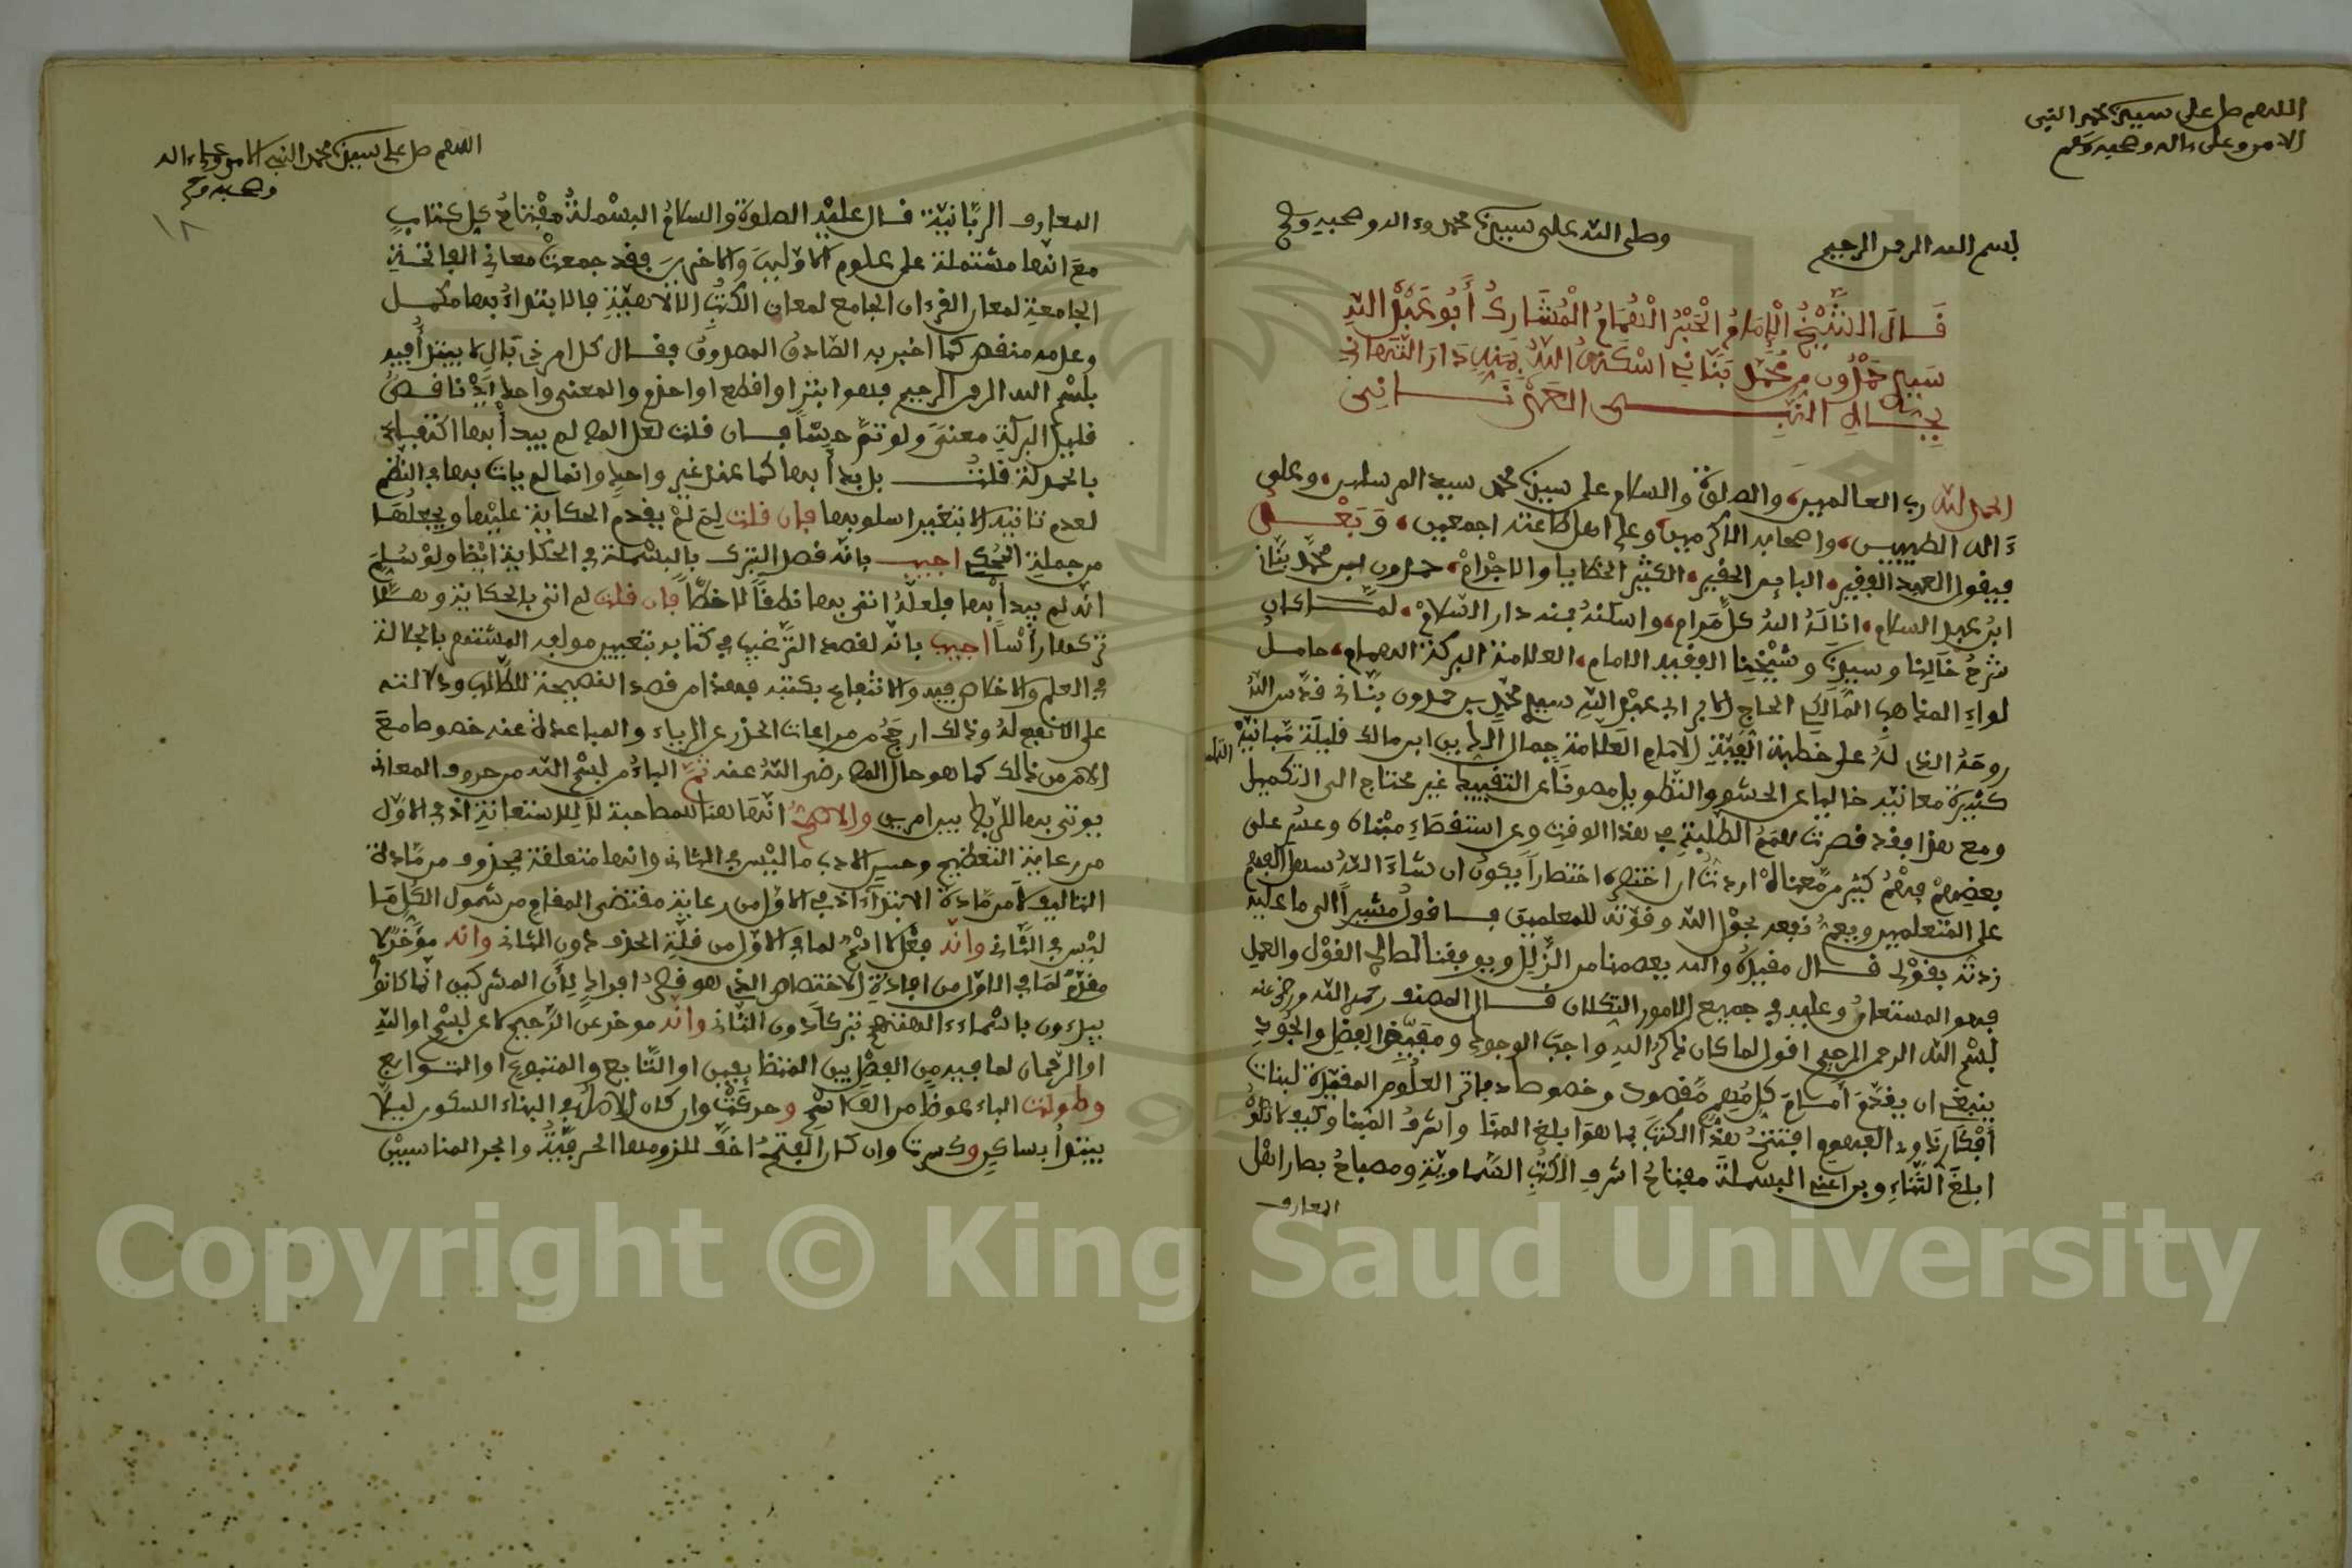 اللهم صل على سيدنا محمد النبي
الامي وعلى ءاله وصحبه وسلم
بسم الله الرحمن الرحيم وصلى الله على سيدنا محمد وءاله وصحبه وسلم
قَالَ الشَّيْخُ الْإِمَامُ الْحَبْرُ الْهُمَامُ الْمُشَارِكُ أَبُو عَبْدِ اللَّهِ
سَيِّدِي حَمْدُون بن مُحَمَّد بَنَّاني اسْكَنَهُ اللهُ بِمَنِّهِ دَارَ التَّهَاني
بِجَاهِ النَّبِي العَدْنَانِي
الحمد لله رب العالمين، والصلوة والسلام على سيدنا محمد سيد المرسلين، وعلى
ءَاله الطيبين، واصحابه الاكرمين، وعلى اهل طاعته اجمعين، وَبَعْد
فيقول العبيد الفقير، البايس الحقير، الكثير الخطايا والاجْرام، حمدون بن محمد بَنَّاني
ابن عبد السلام، انالَهُ اللهُ كلَّ مَرام، واسكنهُ بمنه دار السّلام، لمّا كان
شرحُ خَالِنا وسيدنا وشَيْخِنا الفقيه الامام، العلامة البركة الهمام، حامل
لواءِ المذاهب المَالكي الحاج الابر ابي عبد الله سيدي محمد بن حمدون بنّاني قدّس اللهُ
روحَهُ الذي لهُ على خطبة ألفِيَّةِ الامام العلّامة جمال الدين ابن مالك قليلَة مَّبانيهْ
كثيرةً معانيه خاليا عن الحشو والتطويل مصونًا عن التقييد غير محتاج الى التكميل
ومع هذا فقد قصرت همَمُ الطلبةِ في هذا الوقت عن استقصاءِ مبْناه وعسُر على
بعضِهمْ فهْمُ كثير من معناهْ اردتُ ان اختصره اختصاراً يكون ان شاءَ اللهُ سهل الفهم
على المتعلمين ويعمُّ نفعه بحول الله وقوّته للمعلمين فاقولُ مشيراً الى ما عليه
زدته بقوْلي قال مقيدُهُ والله يعصمنا من الزَّلل ويوفقنا لصالح القوْل والعمل
فهو المستعانُ وعليه في جميع الامور التكلان قال المصنف رحمه الله ورضي عنه
بسْم الله الرحمن الرحيم اقول لما كان ذكرُ الله واجبَ الوجود ومفيضِ الفضل والجُود
ينبغي ان يقدَّمَ أمامَ كلّ مُهمٍّ مَّقصود وخصوصا دفاتر العلُوم المقيَّدة لبنات
أفْكارنَا وذا الفهوم افتتحُ هذَا الكتبَ بما هو ابلغ المنا واشرفُ المَبنا وكيف لا وهْوَ
ابلغ الثَّناءِ وبراعةُ البسملة مفتاحُ اشرفِ الكتُبِ السّماويّة ومصباحُ بصاراهْل
المعارف
اللهم صل على سيدنا محمد النبي الامي وعلى ءاله
وصحبه وسلم
المعارف الربّانيّة قال عليْه الصلوة والسلامُ البسْملةُ مفتاحُ كل كتابٍ
معَ انّها مشتملة على علوم الاوّلينَ والاخرينَ فقد جمعتْ معاني الفاتحةِ
الجامعةِ لمعان القرءان الجامع لمعان الكتُبِ الالاهيّةِ فالابتداءُ بها مكمل
وعدمه منقص كما اخبر به الصّادق المصدوق فقال كل امر ذي بَالٍ لا يبتدأُ فيه
ببسْم الله الرحمن الرحيم فهو ابتر او اقطع او اجذم والمعنى واحد ايْ ناقصُ
قليل البركة معنىً ولو تمَّ حِسًّا فان قلت لعل المص لم يبدأْ بها اكتفاء
بالحمدلة قلتُ بل بدأ بها كما عند غير واحد وانما لم يات بها في النظم
لعدم تاتيه الا بتغيير اسلوبها فإن قلت لِمَ لمْ يقدّم الحكاية عليْها ويجعلْها
من جملةِ المحْكي اجيب بانّه قصد التبرك بالبسْملة في الحكاية ايْضا ولوْ سُلِّمَ
انّه لم يبدأْ بها فلعلَّهُ اتى بها نطقًا لا خطًّا فان قلت لم اتى بالحكاية وهلّا
تركها رأْساً اجيب بانّه لقصد التَّرغيب في كتابه بتعيين مولفه المشتهر بالجلالة
في العلم والاخلاص فيه والانتفاع بكتبه فهذا من قصد النصيحة للطّالب ودلالته
على الانفع لهُ وذلك ارجَحُ من مراعات الحذر عن الرياء والمباعدة عنه خصوصا مَعَ
الامن من ذلك كما هو حال المص رضي اللهُ عنه ثمَّ الباءُ من بسْم الله من حروف المعاني
يوتى بها للرّبط بين امرين والاصحُّ انّها هنا للمصاحبة لا للاستعانة اذ في الاوّل
من رعاية التعظيم وحسن الادب ما ليْس في الثاني وانها متعلقة بمحذوف من مّادة
التاليف لا من مّادة الابتدَاءِ اذ في الاوّل من رعاية مقتضى المقام من شمول الكُلّ مَا
ليْس في الثّاني وانّه فِعْل لا اسْمٌ لما في الاوّل من قلّة الحذف دون الثاني وانه مؤخّر لا
مقدّمٌ لمَا في الاوّل من افادة الاختصاص الذي هو قصرُ افرادٍ لِأنّ المشركين انّما كانوا
يبدءون باسماءِ ءالهتهم تبركاً دون الثاني وانّه موخر عن الرّحيم لا عن بسْم او الله
او الرحْمان لما فيه من الفصْل بين المتضايفين او التَّابع والمتبوع او التوابع
وطولت الباء عوضًا من الف اسْمِ وحركتْ وان كان الاصلُ في البناء السكون ليلا
يبتدأُ بساكن وكسرت وان كان الفتحُ اخفَّ للزومها الحرفيّةُ والجر المناسبيْن
Copyright © King Saud University